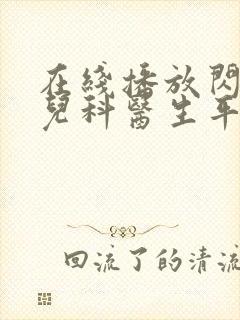 在綫播放閃
兒科醫生年
回流了的清流